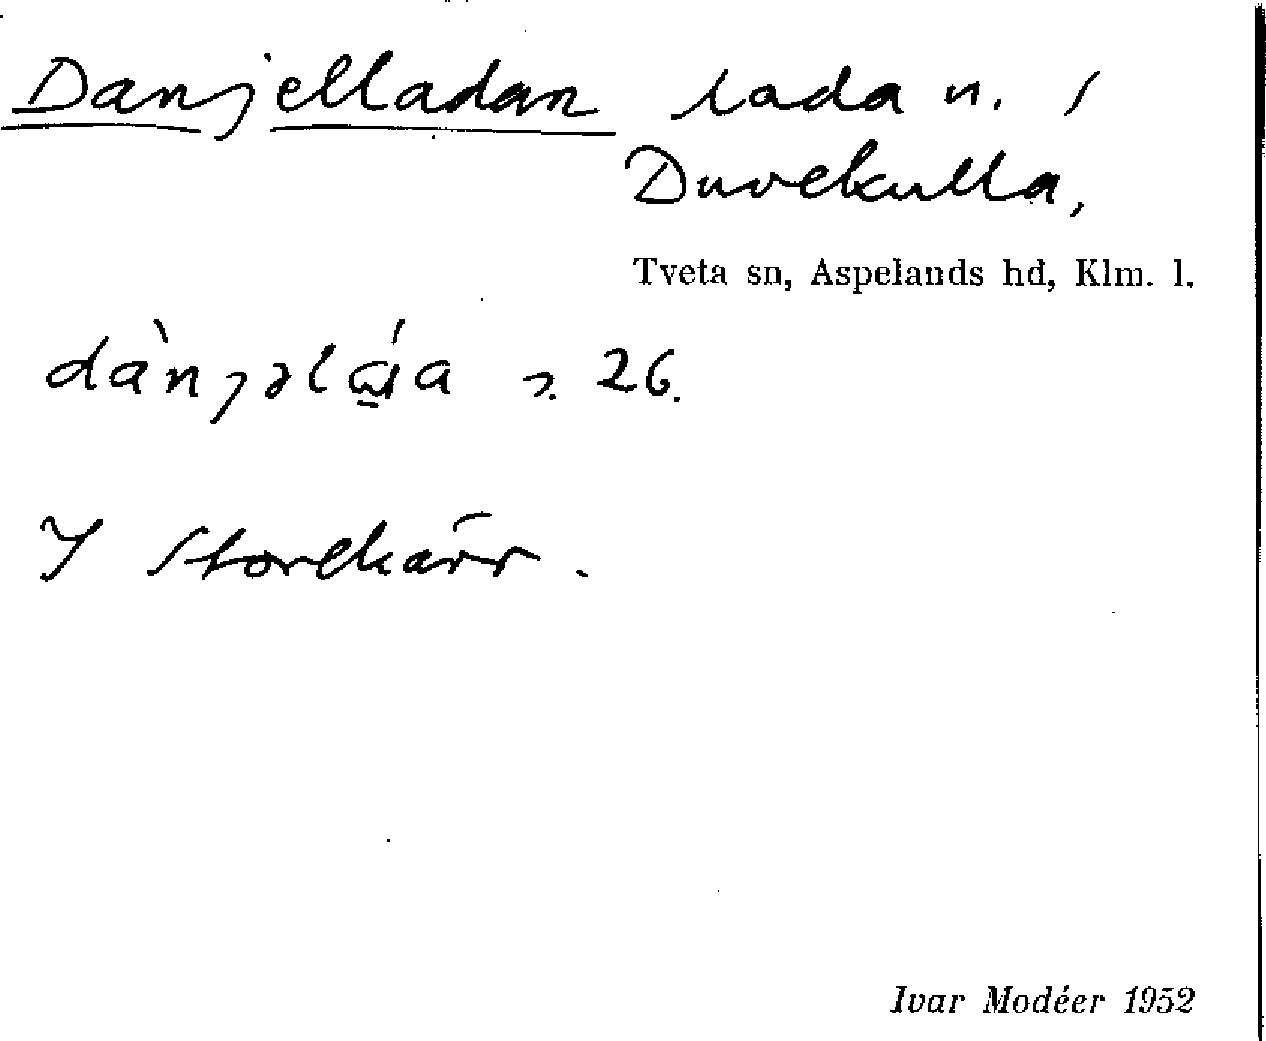 Danjelladan lada n. /
Duvekulla,
Tveta sn, Aspelands hd, Klm. l.
26.
I Storekärr.
Ivar Modéer 1952